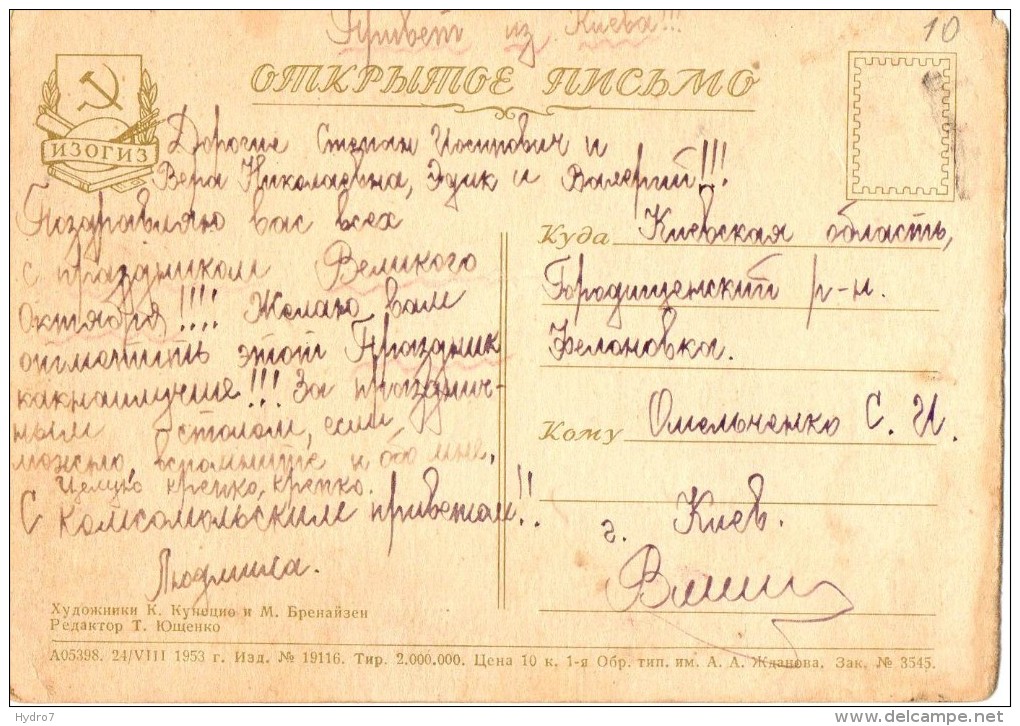 10
Привет из Киева!!!
ОТКРЫТОЕ ПИСЬМО
ИЗОГИЗ
Дорогие Степан Иосипович и
Вера Николаевна, Эдик и Валерий!!!
Поздравляю вас всех
с праздником Великого
Октября!!!! Желаю вам
отметить этот Праздник
какнаилучше!!! За празднич-
ным столом, если
можно, вспомните и обо мне.
Целую крепко, крепко.
С комсомольским приветом!!
Людмила.
Куда Киевская область,
Городищенский р-н.
Фелоновка.
Кому Омельченко С. И.
г. Киев.
Художники К. Кунецио и М. Бренайзен
Редактор Т. Ющенко
А05398. 24/VIII 1953 г. Изд. № 19116. Тир. 2.000.000. Цена 10 к. 1-я Обр. тип. им. А. А. Жданова. Зак. № 3545.
Hydro7
delcampe.net